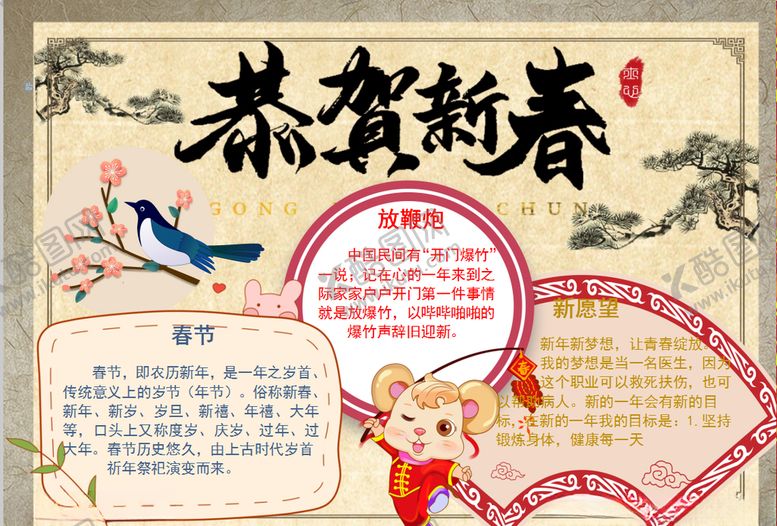 恭贺新春
GONG CHUN
放鞭炮
中国民间有“开门爆竹”
一说；记在心的一年来到之
际家家户户开门第一件事情
就是放爆竹，以哔哔啪啪的
爆竹声辞旧迎新。
春节
春节，即农历新年，是一年之岁首、
传统意义上的岁节（年节）。俗称新春、
新年、新岁、岁旦、新禧、年禧、大年
等，口头上又称度岁、庆岁、过年、过
大年。春节历史悠久，由上古时代岁首
祈年祭祀演变而来。
新愿望
新年新梦想，让青春绽放。
我的梦想是当一名医生，因为
这个职业可以救死扶伤，也可
以帮助病人。新的一年会有新的目
标，在新的一年我的目标是：1.坚持
锻炼身体，健康每一天
春